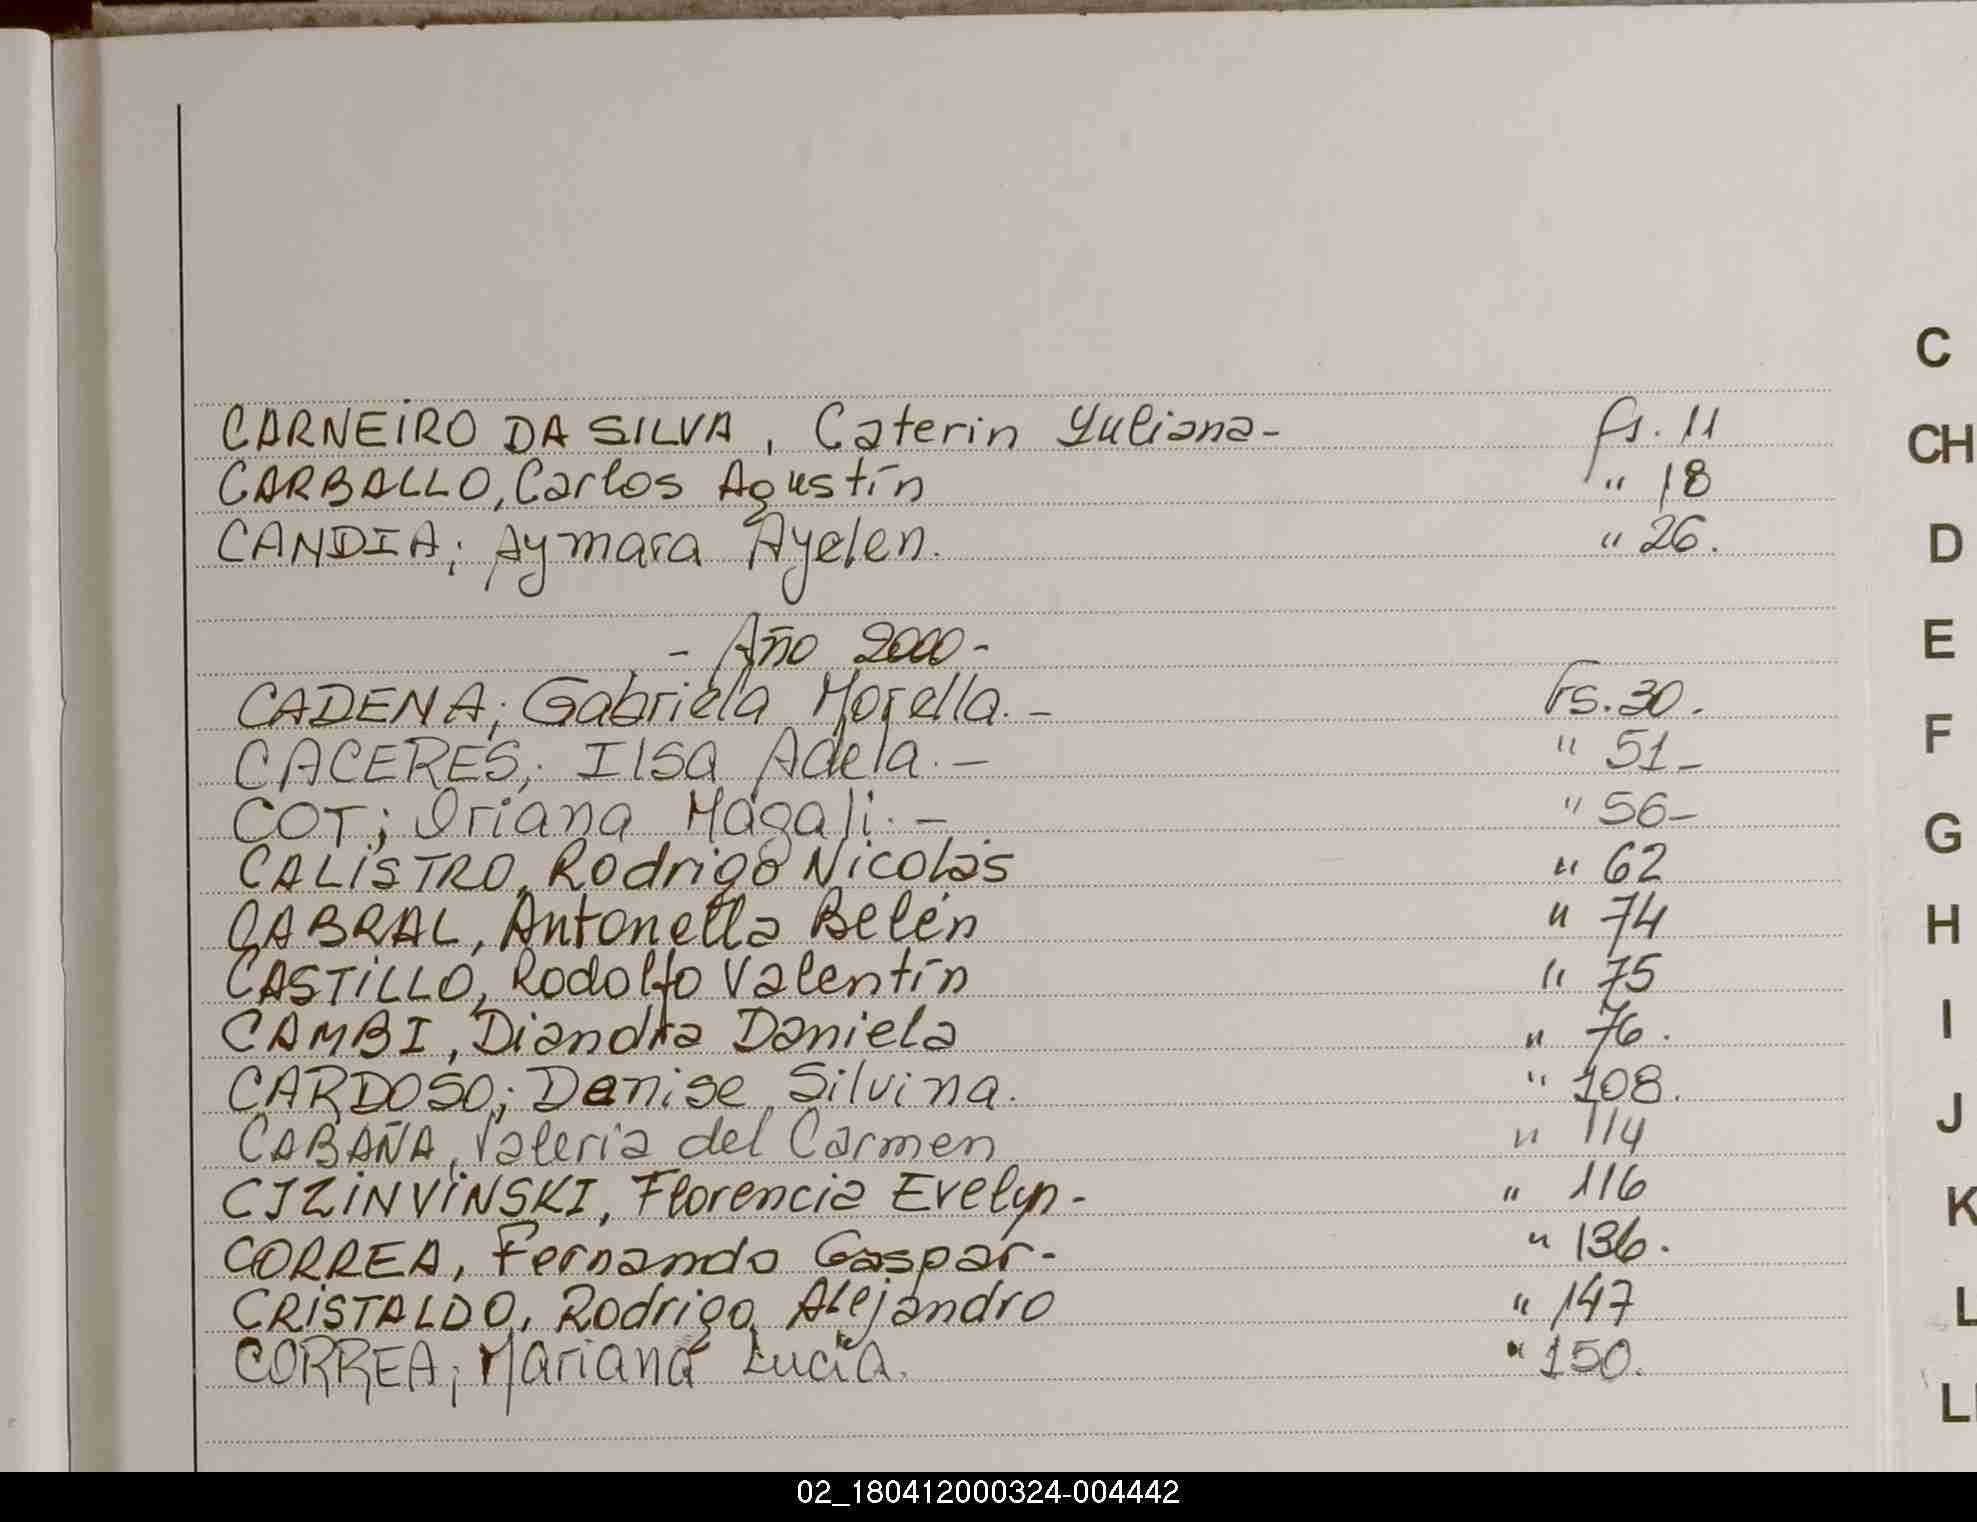 CARNEIRO DA SILVA, Caterin Yuliana- fs. 11
CARBALLO, Carlos Agustín " 18
CANDIA; Aymara Ayelen. " 26.
- Año 2000 -
CADENA; Gabriela Morella. - Fs. 30.
CACERES; Ilsa Adela. - " 51-
COT; Oriana Magali. - " 56-
CALISTRO, Rodrigo Nicolás " 62
CABRAL, Antonella Belén " 74
CASTILLO, Rodolfo Valentín " 75
CAMBI, Diandra Daniela " 76.
CARDOSO; Denise Silvina. " 108.
CABAÑA, Valeria del Carmen " 114
CIZINVINSKI, Florencia Evelyn- " 116
CORREA, Fernando Gaspar- " 136.
CRISTALDO, Rodrigo Alejandro " 147
CORREA; Mariana Lucía. " 150.
C
CH
D
E
F
G
H
I
J
K
L
02_180412000324-004442